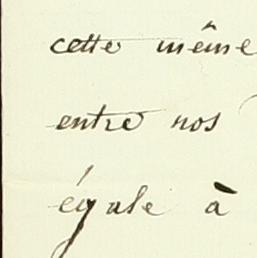 cette même
entre nos
égale à